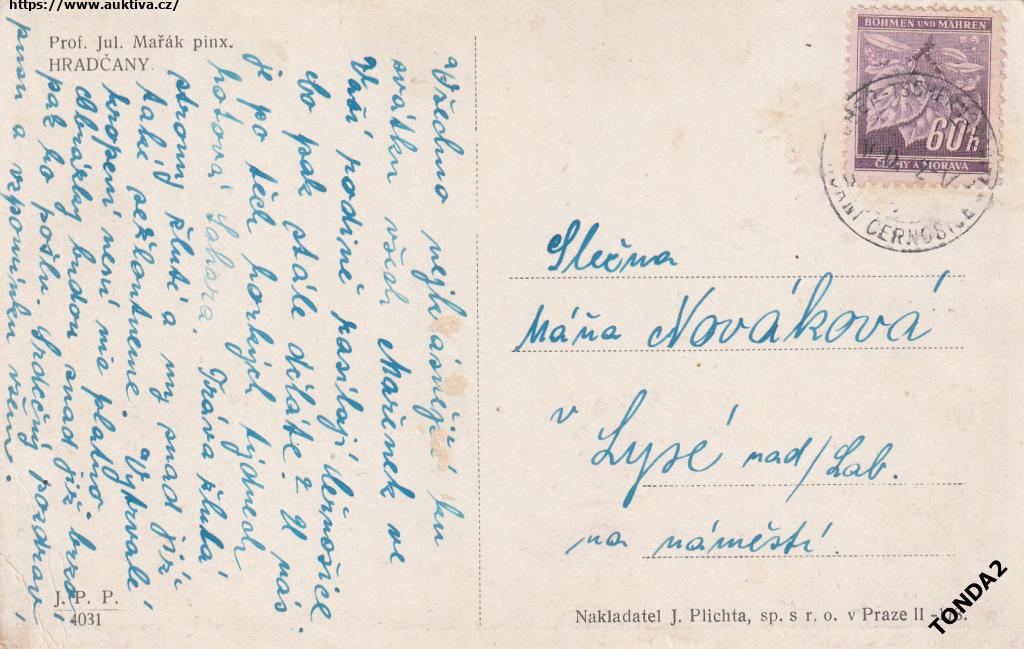 https://www.auktiva.cz/
Prof. Jul. Mařák pinx.
HRADČANY.
Všechno nejkrásnější ku
svátku všech Mařenek ve
Vaší rodině zasílají Černošice
Co pak stále děláte? U nás
je po těch horkých týdnech
hotová Sahara. Tráva žlutá
stromy žluté a my snad již
také sežloutneme. Vytrvalé
kropení není nic platno.
Obrázky budou snad již brzo
pak ho pošlu. Srdečný pozdrav í
pusu a vzpomínku všem.
J. P. P.
4031
BÖHMEN UND MÄHREN
60h
ČECHY A MORAVA
HORNÍ ČERNOŠICE
Slečna
Máňa Nováková
v Lysé nad/Lab.
na náměstí.
Nakladatel J. Plichta, sp. s r. o. v Praze II
TONDA2